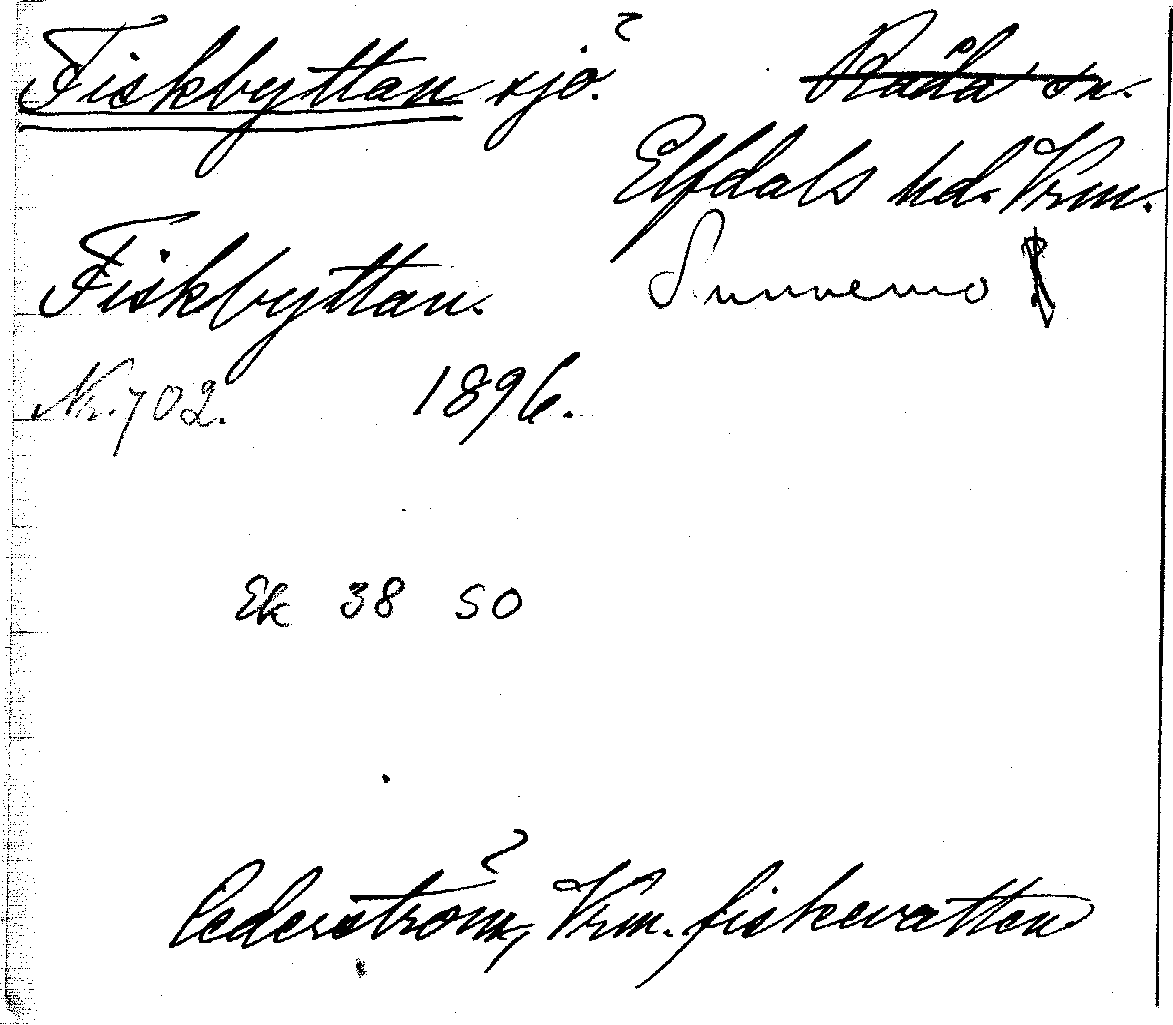 Fiskbyttan sjö. Råda sn.
Elfdals hd. Vrm.
Fiskbyttan. Sunnemo
Nr. 702. 1896.
Ek 38 SO
Cederström, Vrm. fiskevatten